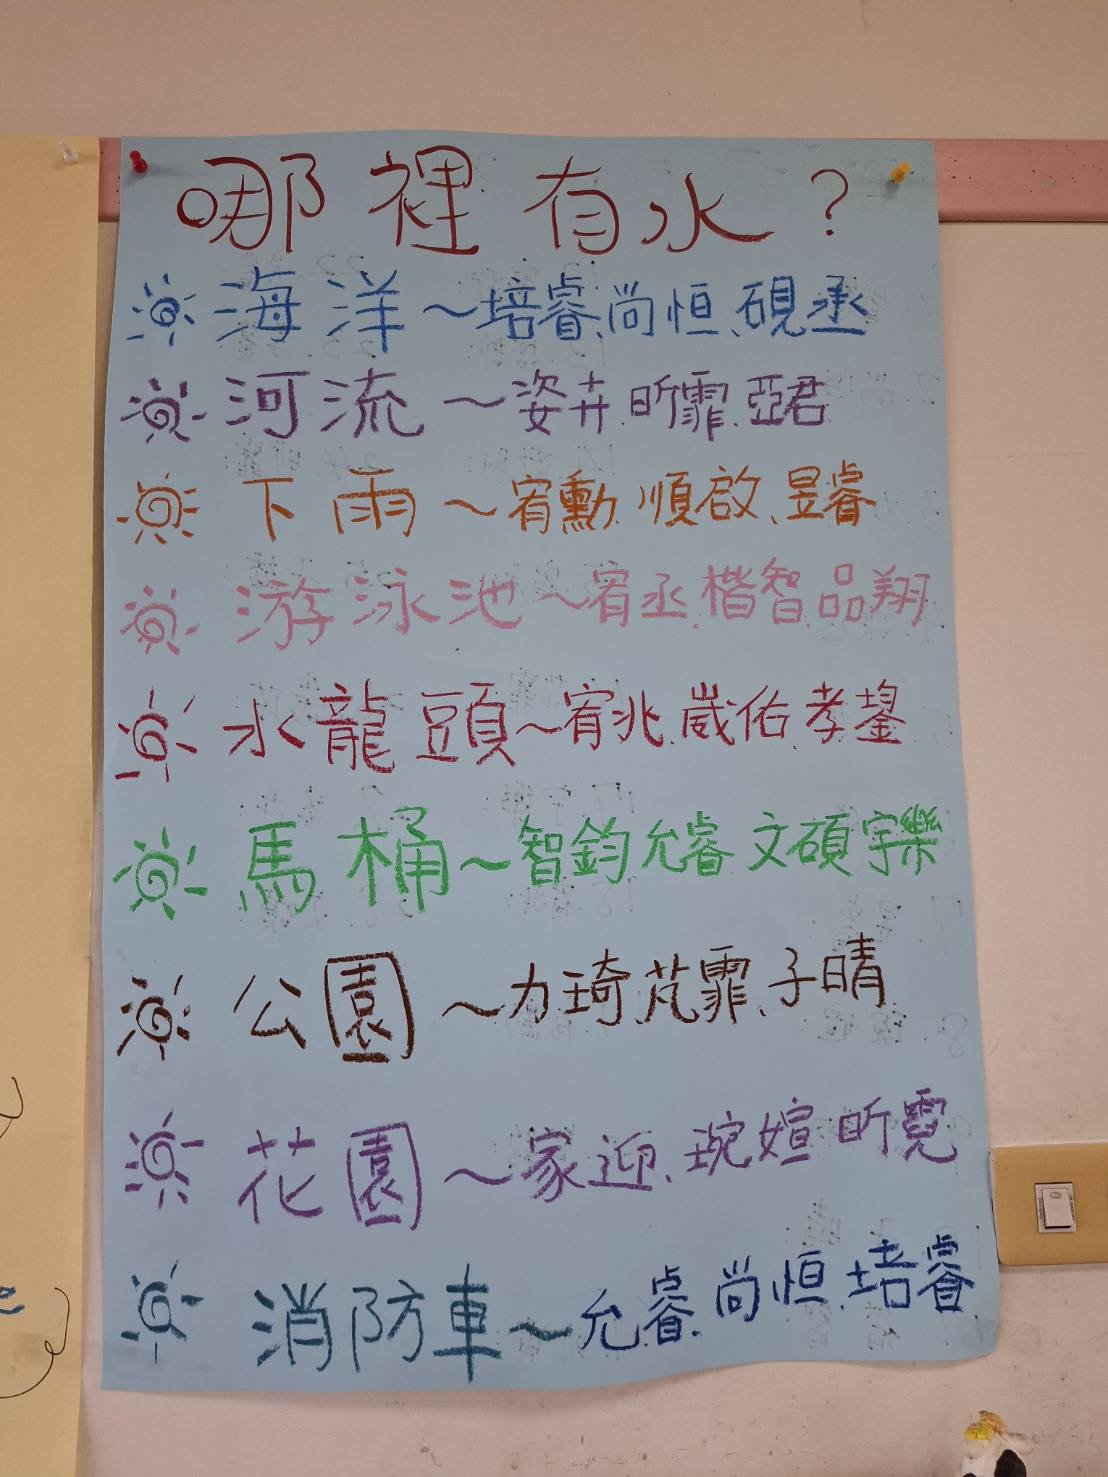 哪裡有水?
海洋～培睿、尚恒、硯丞
河流～姿卉、昕霏、亞君
下雨～宥勳、順啟、昱睿
游泳池～宥丞、楷智、品翔
水龍頭～宥兆、崴佑、孝鋆
馬桶～智鈞、允睿、文碩、宇樂
公園～力琦、芃霏、子晴
花園～家迎、琬媗、昕霓
消防車～允睿、尚恒、培睿